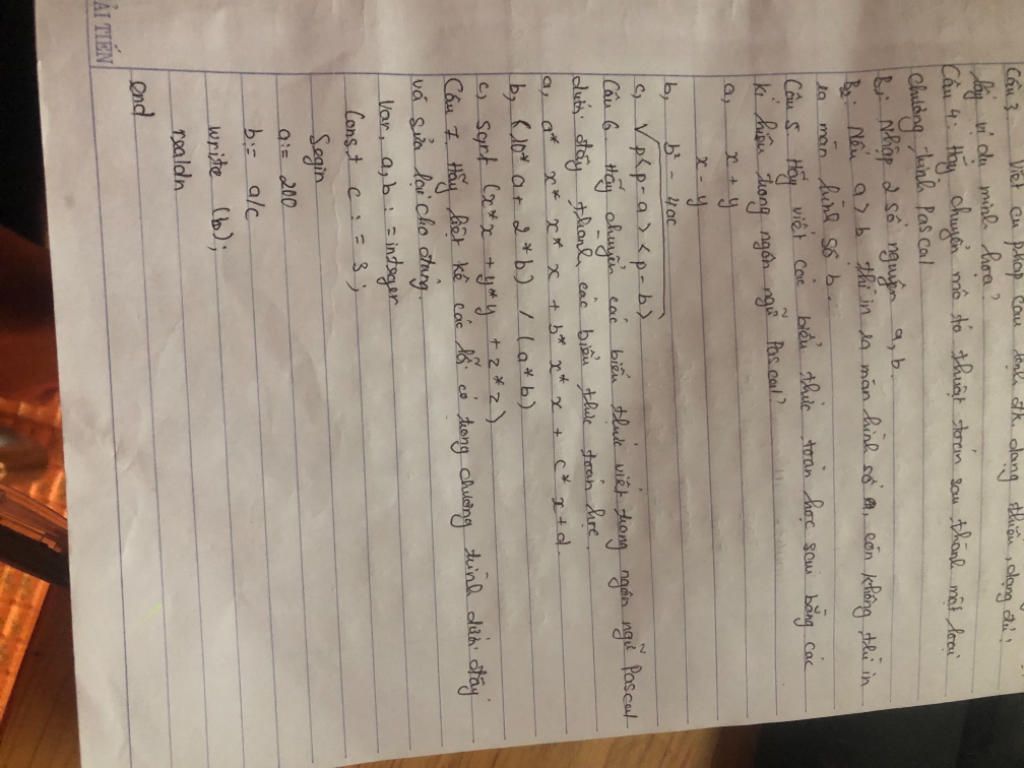 ẢI TIẾN
Câu 3. Viết cú pháp câu lệnh th dạng thiếu, dạng đủ!
lấy ví dụ minh họa?
Câu 4: Hãy chuyển mô tả thuật toán sau thành một loại
chương trình Pascal
B1: Nhập 2 số nguyên a, b.
B2: Nếu a > b thì in ra màn hình số a, còn không thì in
ra màn hình số b...
Câu 5 Hãy viết các biểu thức toán học sau bằng các
kí hiệu trong ngôn ngữ Pascal?
a, x + y
x - y
b, b² - 4ac
c, √p<p-a><p-b)
Câu 6 Hãy chuyển các biểu thức viết trong ngôn ngữ Pascal
dưới đây thành các biểu thức toán học
a, a* x* x* x + b* x* x + c* x + d
b, (10* a + 2* b) / (a* b)
c, sqrt (x*x + y*y + z*z)
Câu 7. Hãy liệt kê các lỗi có trong chương trình dưới đây
và sửa lại cho đúng.
Var, a, b : = integer
Const c : = 3;
Segin
a:= 200
b:= a/c
write (b);
realdn
end